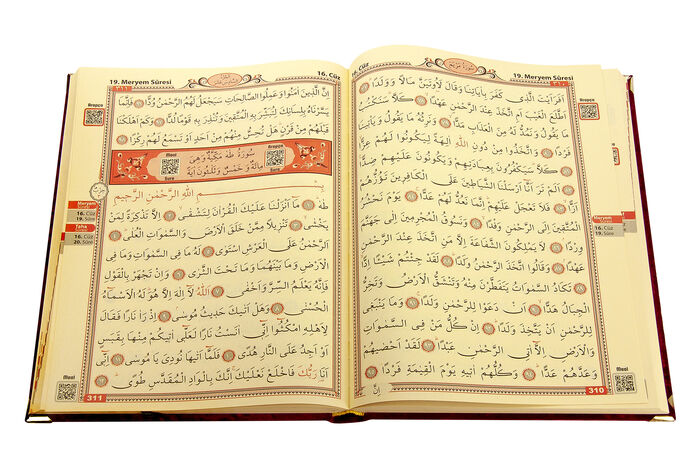 16. Cüz
19. Meryem Sûresi
سُورَةُ مَرْيَمَ
٣١٠
اَفَرَاَيْتَ الَّذ۪ي كَفَرَ بِاٰيَاتِنَا وَقَالَ لَاُو۫تَيَنَّ مَالًا وَوَلَدًا
اَطَّلَعَ الْغَيْبَ اَمِ اتَّخَذَ عِنْدَ الرَّحْمٰنِ عَهْدًا كَلَّا سَنَكْتُبُ
مَا يَقُولُ وَنَمُدُّ لَهُ مِنَ الْعَذَابِ مَدًّا وَنَرِثُهُ مَا يَقُولُ وَيَأْت۪ينَا
فَرْدًا وَاتَّخَذُوا مِنْ دُونِ اللّٰهِ اٰلِهَةً لِيَكُونُوا لَهُمْ عِزًّا
كَلَّا سَيَكْفُرُونَ بِعِبَادَتِهِمْ وَيَكُونُونَ عَلَيْهِمْ ضِدًّا
اَلَمْ تَرَ اَنَّٓا اَرْسَلْنَا الشَّيَاط۪ينَ عَلَى الْكَافِر۪ينَ تَؤُزُّهُمْ
اَزًّا فَلَا تَعْجَلْ عَلَيْهِمْ اِنَّمَا نَعُدُّ لَهُمْ عَدًّا يَوْمَ نَحْشُرُ
الْمُتَّق۪ينَ اِلَى الرَّحْمٰنِ وَفْدًا وَنَسُوقُ الْمُجْرِم۪ينَ اِلٰى جَهَنَّمَ
وِرْدًا لَا يَمْلِكُونَ الشَّفَاعَةَ اِلَّا مَنِ اتَّخَذَ عِنْدَ الرَّحْمٰنِ
عَهْدًا وَقَالُوا اتَّخَذَ الرَّحْمٰنُ وَلَدًا لَقَدْ جِئْتُمْ شَيْـًٔا اِدًّا
تَكَادُ السَّمٰوَاتُ يَتَفَطَّرْنَ مِنْهُ وَتَنْشَقُّ الْاَرْضُ وَتَخِرُّ
الْجِبَالُ هَدًّا اَنْ دَعَوْا لِلرَّحْمٰنِ وَلَدًا وَمَا يَنْبَغ۪ي
لِلرَّحْمٰنِ اَنْ يَتَّخِذَ وَلَدًا اِنْ كُلُّ مَنْ فِي السَّمٰوَاتِ
وَالْاَرْضِ اِلَّٓا اٰتِي الرَّحْمٰنِ عَبْدًا لَقَدْ اَحْصٰيهُمْ
وَعَدَّهُمْ عَدًّا وَكُلُّهُمْ اٰت۪يهِ يَوْمَ الْقِيٰمَةِ فَرْدًا
اِنَّ
Arapça
Meryem
16. Cüz
19. Sûre
Meal
310
19. Meryem Sûresi
16. Cüz
٣١١
اِنَّ الَّذ۪ينَ اٰمَنُوا وَعَمِلُوا الصَّالِحَاتِ سَيَجْعَلُ لَهُمُ الرَّحْمٰنُ وُدًّا فَاِنَّمَا
يَسَّرْنَاهُ بِلِسَانِكَ لِتُبَشِّرَ بِهِ الْمُتَّق۪ينَ وَتُنْذِرَ بِه۪ قَوْمًا لُدًّا وَكَمْ اَهْلَكْنَا
قَبْلَهُمْ مِنْ قَرْنٍ هَلْ تُحِسُّ مِنْهُمْ مِنْ اَحَدٍ اَوْ تَسْمَعُ لَهُمْ رِكْزًا
Arapça
Sure
Meal
Sure
سُورَةُ طٰهٰ مَكِّيَّةٌ وَهِيَ
مِائَةٌ وَخَمْسٌ وَثَلٰثُونَ اٰيَةً
بِسْمِ اللّٰهِ الرَّحْمٰنِ الرَّح۪يمِ
طٰهٰ مَٓا اَنْزَلْنَا عَلَيْكَ الْقُرْاٰنَ لِتَشْقٰى اِلَّا تَذْكِرَةً لِمَنْ
يَخْشٰى تَنْز۪يلًا مِمَّنْ خَلَقَ الْاَرْضَ وَالسَّمٰوَاتِ الْعُلٰى
اَلرَّحْمٰنُ عَلَى الْعَرْشِ اسْتَوٰى لَهُ مَا فِي السَّمٰوَاتِ وَمَا فِي
الْاَرْضِ وَمَا بَيْنَهُمَا وَمَا تَحْتَ الثَّرٰى وَاِنْ تَجْهَرْ بِالْقَوْلِ
فَاِنَّهُ يَعْلَمُ السِّرَّ وَاَخْفٰى اَللّٰهُ لَٓا اِلٰهَ اِلَّا هُوَ لَهُ الْاَسْمَٓاءُ
الْحُسْنٰى وَهَلْ اَتٰيكَ حَد۪يثُ مُوسٰى اِذْ رَاٰ نَارًا فَقَالَ
لِاَهْلِهِ امْكُثُٓوا اِنّ۪ٓي اٰنَسْتُ نَارًا لَعَلّ۪ٓي اٰت۪يكُمْ مِنْهَا بِقَبَسٍ
اَوْ اَجِدُ عَلَى النَّارِ هُدًى فَلَمَّٓا اَتٰيهَا نُودِيَ يَا مُوسٰى اِنّ۪ٓي
اَنَا رَبُّكَ فَاخْلَعْ نَعْلَيْكَ اِنَّكَ بِالْوَادِ الْمُقَدَّسِ طُوًى
Arapça
Meryem
16. Cüz
19. Sûre
Taha
16. Cüz
20. Sûre
Meal
311